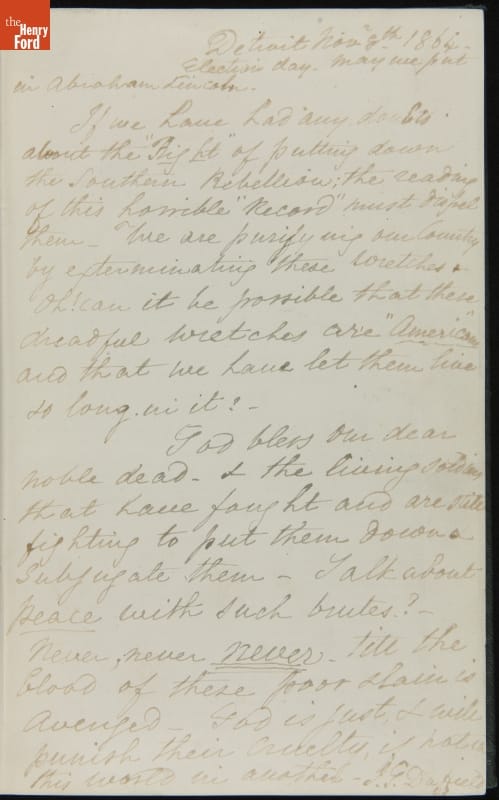 the
Henry
Ford
Detroit Novr 8th 1864-
Election day- may we put
in Abraham Lincoln.
If we have had any doubts
about the "Right" of putting down
the Southern Rebellion; the reading
of this horrible "Record" must dispel
them- We are purifying our Country
by exterminating these wretches &
Oh! can it be possible that these
dreadful wretches are "American"
and that we have let them live
so long in it?-
God bless our dear
noble dead- & the living soldiers
that have fought and are still
fighting to put them down &
Subjugate them- Talk about
peace with such brutes?-
Never, never never- till the
blood of these poor slain is
avenged- God is just, & will
punish their cruelty, if not in
this world in another-